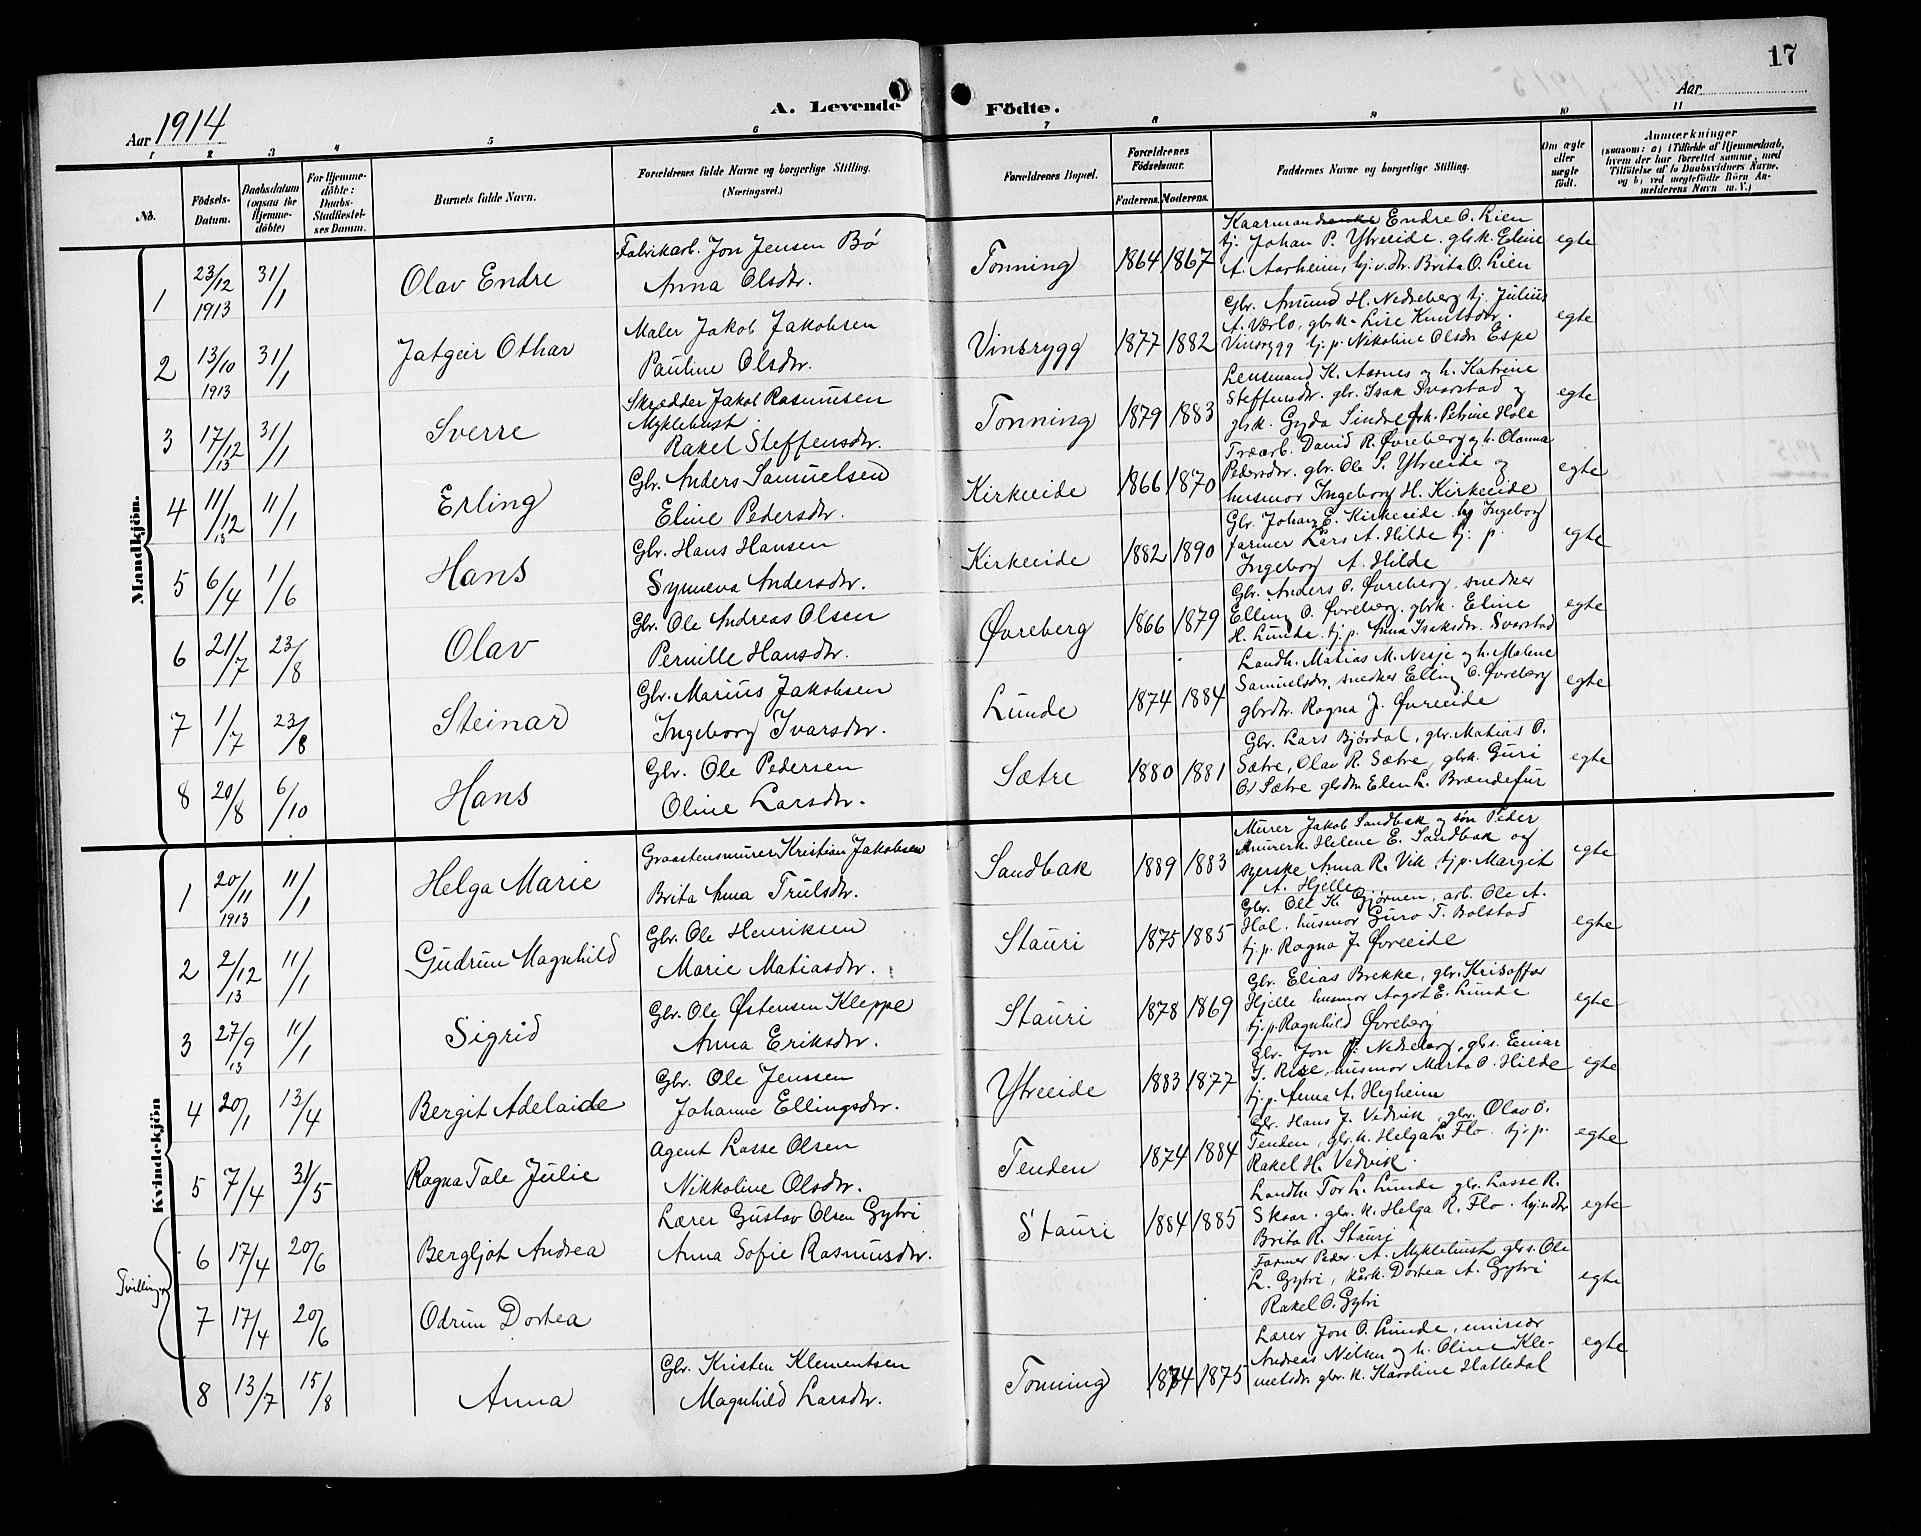 17
Aar 1914
A. Levende Födte.
Aar
1 2 3 4 5 6 7 8 9 10 11
No.
Födsels-Datum.
Daabsdatum (ogsaa for Hjemme-döbte)
For Hjemme-döbte: Daabs-Stadfæstel-ses Datum.
Barnets fulde Navn.
Forældrenes fulde Navne og borgerlige Stilling. (Næringsvei.)
Forældrenes Bopæl.
Forældrenes Födselsaar.
Faderens. Moderens.
Faddernes Navne og borgerlige Stilling.
Om ægte eller uægte födt.
Anmærkninger
(saasom: a) i Tilfælde af Hjemmedaab,
hvem der har forrettet samme, med
Tilföielse af to Daabsvidners Navne.
og b) ved uægtefödte Börn An-
melderens Navn m. V.)
Mandkjön.
1 23/12 1913 31/1 Olav Endre
Fabrikarb. Jon Jensen Bø
Anna Olsdtr.
Tonning 1864 1867
Kaarmand Endre O. Lien
tj. Johan P. Ytreeide. gbrk. Eline
A. Aarheim, tj.v.dtr. Brita O. Lien
egte
2 13/10 1913 31/1 Jatgeir Othar
Maler Jakob Jakobsen
Pauline Olsdtr.
Vinsrygg 1877 1882
Gbr. Amund H. Nedreberg tj. Julius
A. Værlo, gbrk. Lise Knutsdtr.
Vinsrygg tj. p. Nikoline Olsdtr Espe
egte
3 17/12 13 31/1 Sverre
Skrædder Jakob Rasmussen
Myklebust.
Rakel Steffensdtr.
Tonning 1879 1883
Lensmand K. Aarnes og h. Katrine
Steffensdtr. gbr. Isak Svarstad og
gbrk. Gyda Sindre frk. Petrine Hole
egte
4 11/12 13 11/1 Erling
Gbr. Anders Samuelsen
Eline Pedersdtr.
Kirkeeide 1866 1870
Træarb. David R. Øvreberg og h. Olanna
Pedersdtr. gbr. Ole S. Ytreeide og
husmor Ingeborg H. Kirkeeide
egte
5 6/4 1/6 Hans
Gbr. Hans Hansen
Synneva Andersdtr.
Kirkeeide 1882 1890
Gbr. Johan E. Kirkeeide. Ingeborg
farmer Lars A. Hilde tj. p.
Ingeborg A. Hilde
egte
6 21/7 23/8 Olav
Gbr. Ole Andreas Olsen
Pernille Hansdtr.
Øvreberg 1866 1879
Gbr. Anders O. Øvreberg, snedker
Elling O. Øvreberg. gbrk. Eline
H. Lunde. tj. p. Anna Isaksdtr. Svarstad
egte
7 1/7 23/8 Steinar
Gbr. Marius Jakobsen
Ingeborg Ivarsdtr.
Lunde 1874 1884
Landh. Matias M. Nesje og h. Malene
Samuelsdtr, snedker Elling O. Øvreberg
gbrdtr. Ragna J. Øvreeide
egte
8 20/8 6/10 Hans
Gbr. Ole Pedersen
Oline Larsdtr.
Sætre 1880 1881
Gbr. Lars Bjørdal, gbr. Matias O.
Sætre, Olav R. Sætre, gbrk. Guri
O. Sætre gbrdtr. Elen L. Brændefur
egte
Kvindekjön
1 20/11 1913 11/1 Helga Marie
Graastensmurer Kristian Jakobsen
Brita Anna Trulsdtr.
Sandbak 1889 1883
Murer Jakob Sandbak og søn Peder
Murerk. Helene E. Sandbak og
syerske Anna R. Vik. tj. p. Margit
A. Hjelle
egte
2 2/12 13 11/1 Gudrun Magnhild
Gbr. Ole Henriksen
Marie Matiasdtr.
Stauri 1875 1885
Gbr. Ole K. Gjørnen, arb. Ole A.
Hol. husmor Guro T. Bolstad
tj. p. Ragna J. Øvreeide
egte
3 27/9 13 11/1 Sigrid
Gbr. Ole Østensen Kleppe
Anna Eriksdtr.
Stauri 1878 1869
Gbr. Elias Brekke, gbr. Krisoffer
Hjelle husmor Aagot E. Lunde
tj. p. Ragnhild Øvreberg
egte
4 20/1 13/4 Bergit Adelaide
Gbr. Ole Jenssen
Johanne Ellingsdtr.
Ytreeide 1883 1877
Gbr. Jon P. Nedreberg, gbs. Einar
J. Rise, husmor Marta O. Hilde
tj. p. Anna A. Hegheim
egte
5 7/4 31/5 Ragna Tale Julie
Agent Lasse Olsen
Nikkoline Olsdtr.
Tenden 1874 1884
Gbr. Hans J. Vedvik, gbr. Olav O.
Tenden, gbr. k. Helga L. Flo. tj. p.
Rakel H. Vedvik.
egte
Tvillinger
6 17/4 20/6 Bergljot Andrea
Lærer Gustav Olsen Gytri
Anna Sofie Rasmusdtr.
Stauri 1884 1885
Landh. Tor L. Lunde gbr. Lasse R.
Skaar. gbr. k. Helga R. Flo.
Brita R. Stauri
egte
7 17/4 20/6 Odrun Dortea
Farmer Peder A. Myklebust gbs. Ole
L. Gytri, kårk. Dortea A. Gytri
Rakel O. Gytri
egte
8 13/7 15/8 Anna
Gbr. Kristen Klementsen
Magnhild Larsdtr.
Tonning 1874 1875
Lærer Jon O. Lunde, emisær
Andreas Nilsen og h. Oline Kle-
metsdr. gbr. k. Karoline Hattedal
egte